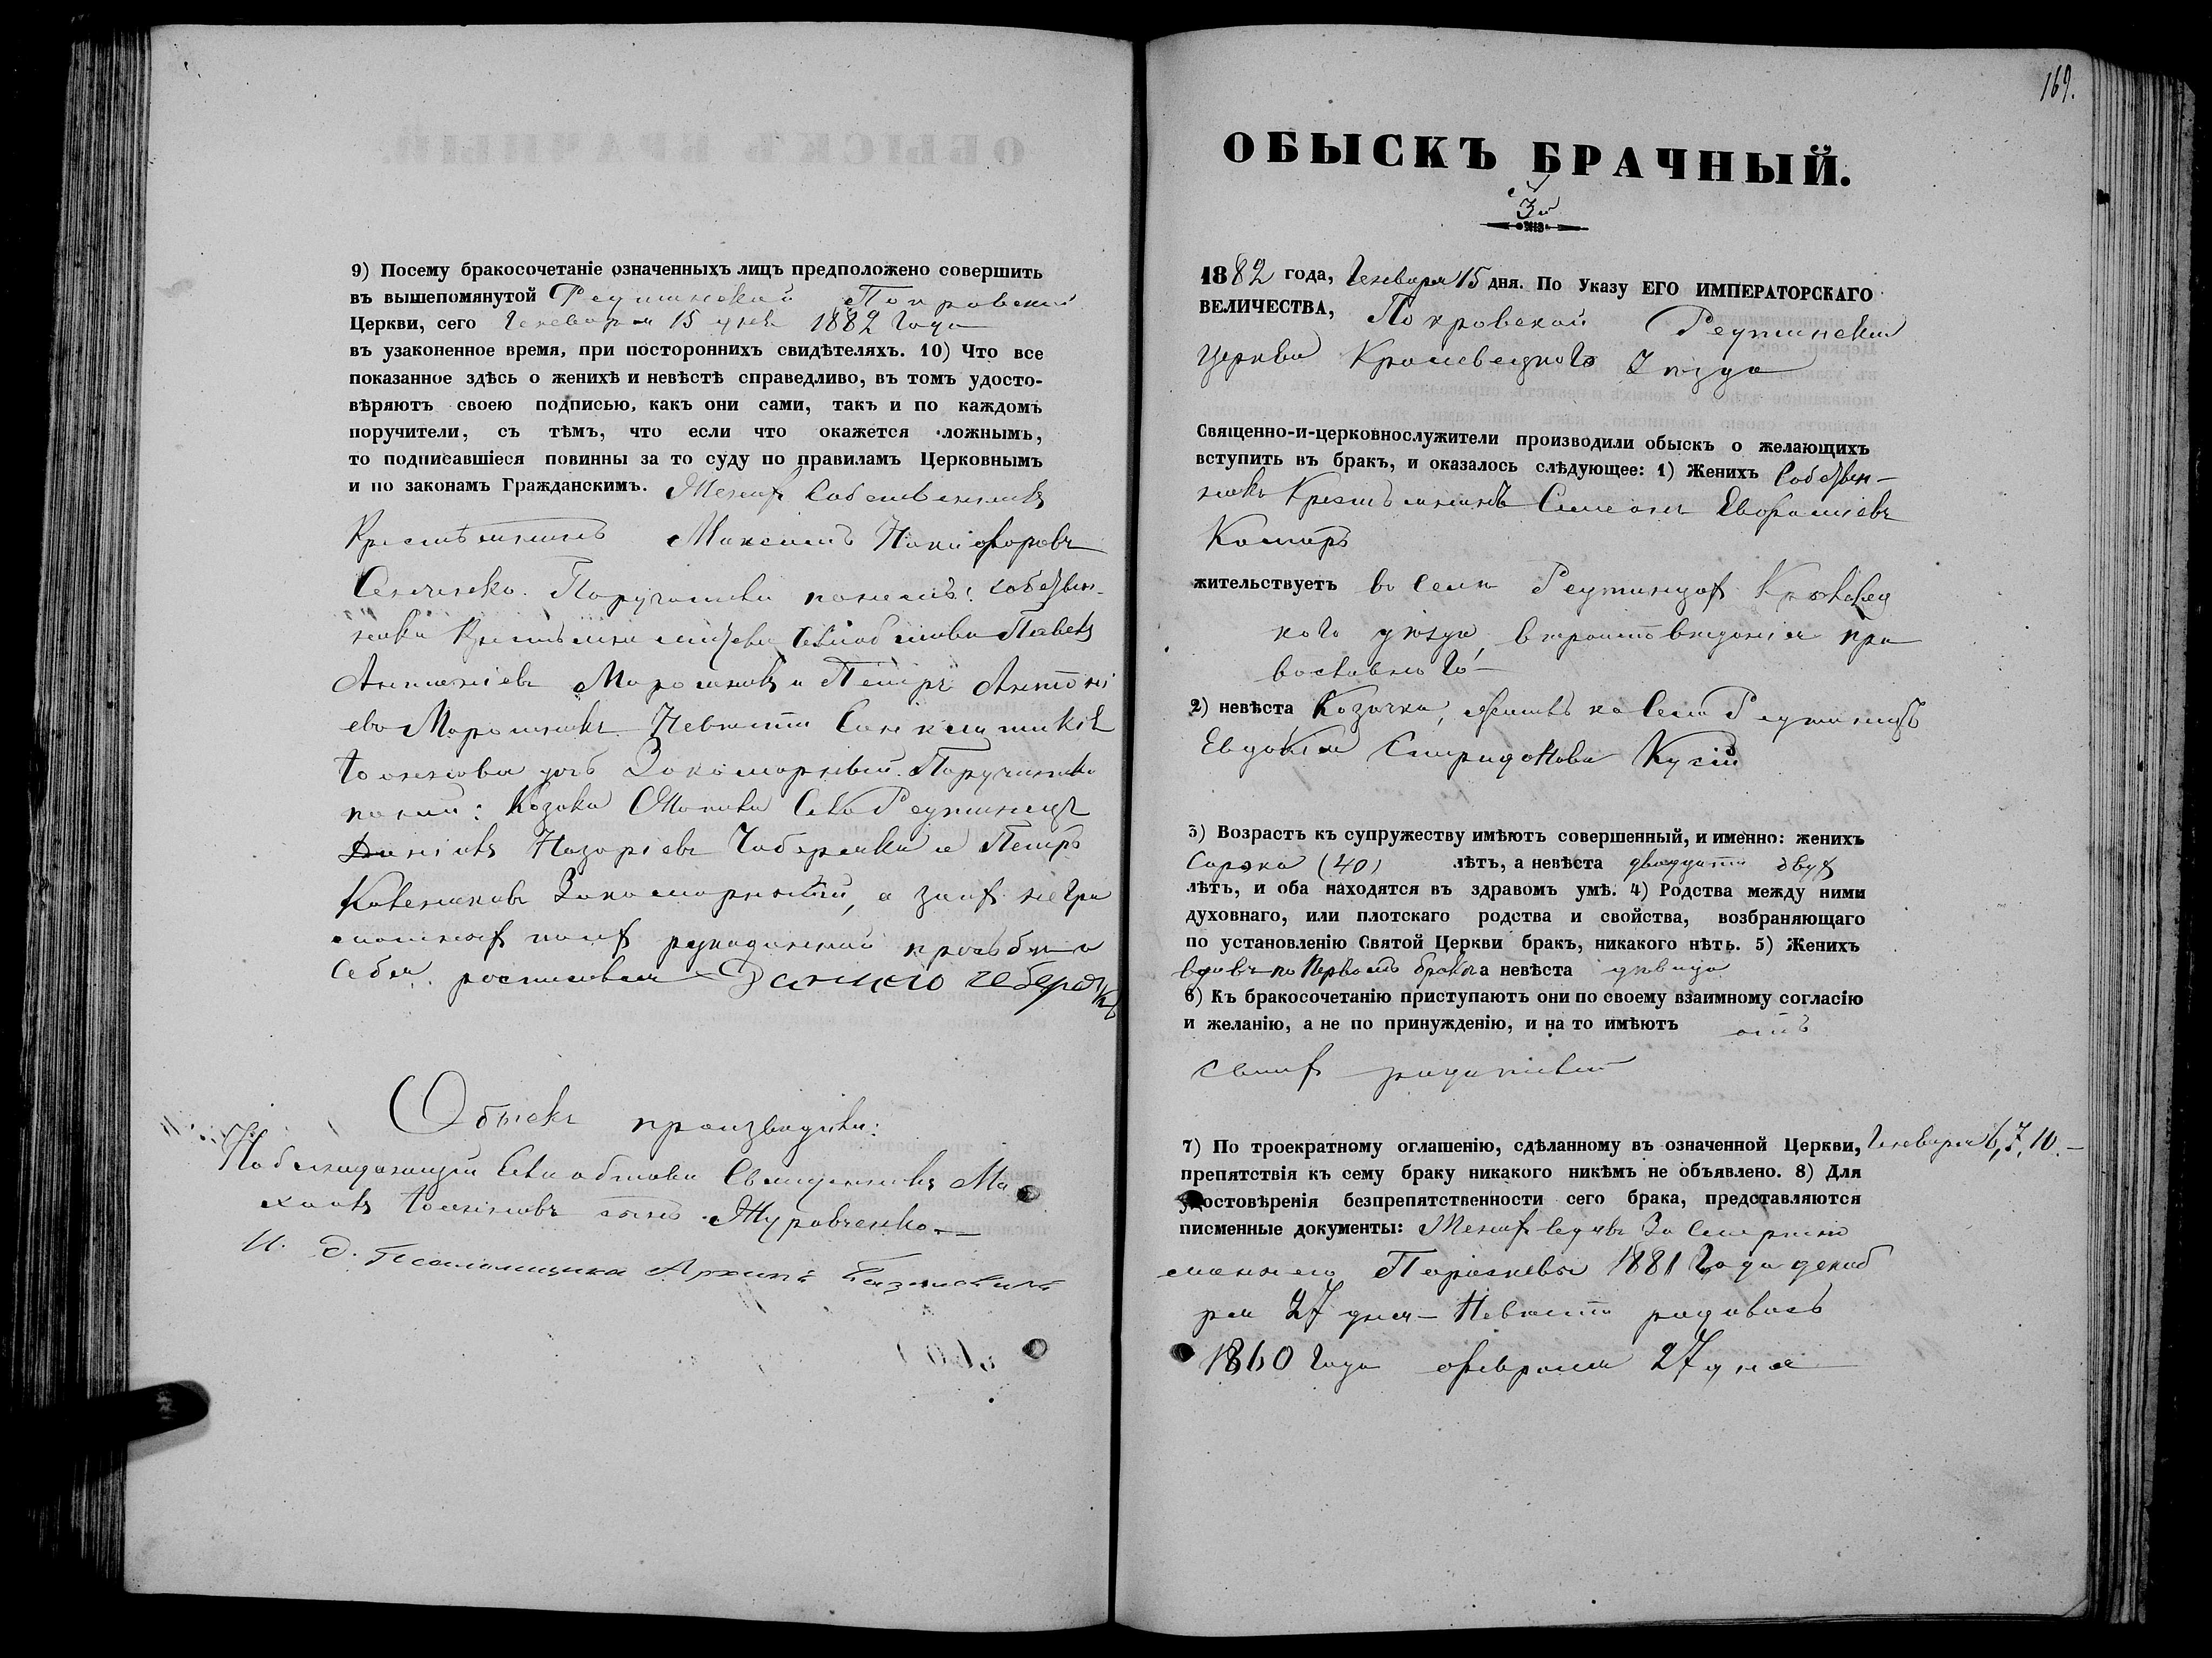 9) Посему бракосочетаніе означенныхъ лицъ предположено совершить
въ вышепомянутой Реутинской Покровской
Церкви, сего Генваря 15 дня 1882 года
въ узаконенное время, при постороннихъ свидѣтеляхъ. 10) Что все
показанное здѣсь о женихѣ и невѣстѣ справедливо, въ томъ удосто-
вѣряютъ своею подписью, какъ они сами, такъ и по каждомъ
поручители, съ тѣмъ, что если что окажется ложнымъ,
то подписавшіеся повинны за то суду по правиламъ Церковнымъ
и по законамъ Гражданскимъ. Женихъ Собственникъ
Крестьянинъ Максимъ Никифоровъ
Сенченко. Поручители по немъ: собствен-
Антоніевъ Мирошникъ и Петръ Антоні
евъ Мирошникъ Невѣсти
дочь Закоморный. Поручители
по ней: Козаки Села Реутинецъ
Даніилъ Назаріевъ Чаберяка и Петръ
Закоморный, а за ихъ негра
мотныхъ по ихъ рукоданной прозьбѣ и
себя росписался Данило Чеберяка
Обыскъ производили:
Наблюдающій Священникъ Ми
хаилъ Іоанновъ сынъ Журавченко
И. д. Псаломщика Архипъ
169.
ОБЫСКЪ БРАЧНЫЙ.
3й
1882 года, Генваря 15 дня. По Указу ЕГО ИМПЕРАТОРСКАГО
ВЕЛИЧЕСТВА, Покровской Реутинской
церкви Кролевецкого Уезда
Священно-и-церковнослужители производили обыскъ о желающихъ
вступить въ бракъ, и оказалось слѣдующее: 1) Женихъ Собствен-
никъ Крестьянинъ Симеонъ Евфоміевъ
Комаръ
жительствуетъ въ селѣ Реутинцахъ Кролевец
кого уезда, вероисповеданія пра
вославного
2) невѣста Козачка, житель ка Села Реутинецъ
Евдокія Спиридонова Кусій
3) Возрастъ къ супружеству имѣютъ совершенный, и именно: женихъ
Сорока (40) лѣтъ, а невѣста двадцати двухъ
лѣтъ, и оба находятся въ здравомъ умѣ. 4) Родства между ними
духовнаго, или плотскаго родства и свойства, возбраняющаго
по установленію Святой Церкви бракъ, никакого нѣтъ. 5) Женихъ
вдовъ по Первомъ бракѣ а невѣста девица
6) Къ бракосочетанію приступаютъ они по своему взаимному согласію
и желанію, а не по принужденію, и на то имѣютъ отъ
своихъ родителей
7) По троекратному оглашенію, сдѣланному въ означенной Церкви, Генваря 6, 7, 10. –
препятствія къ сему браку никакого никѣмъ не объявлено. 8) Для
удостовѣренія безпрепятственности сего брака, представляются
писменные документы: Женихъ вдовъ За Смертію
женою Параскевы 1881 Года декаб
ря 27 дня – Невѣста родилась
1860 Года февраля 27 дня